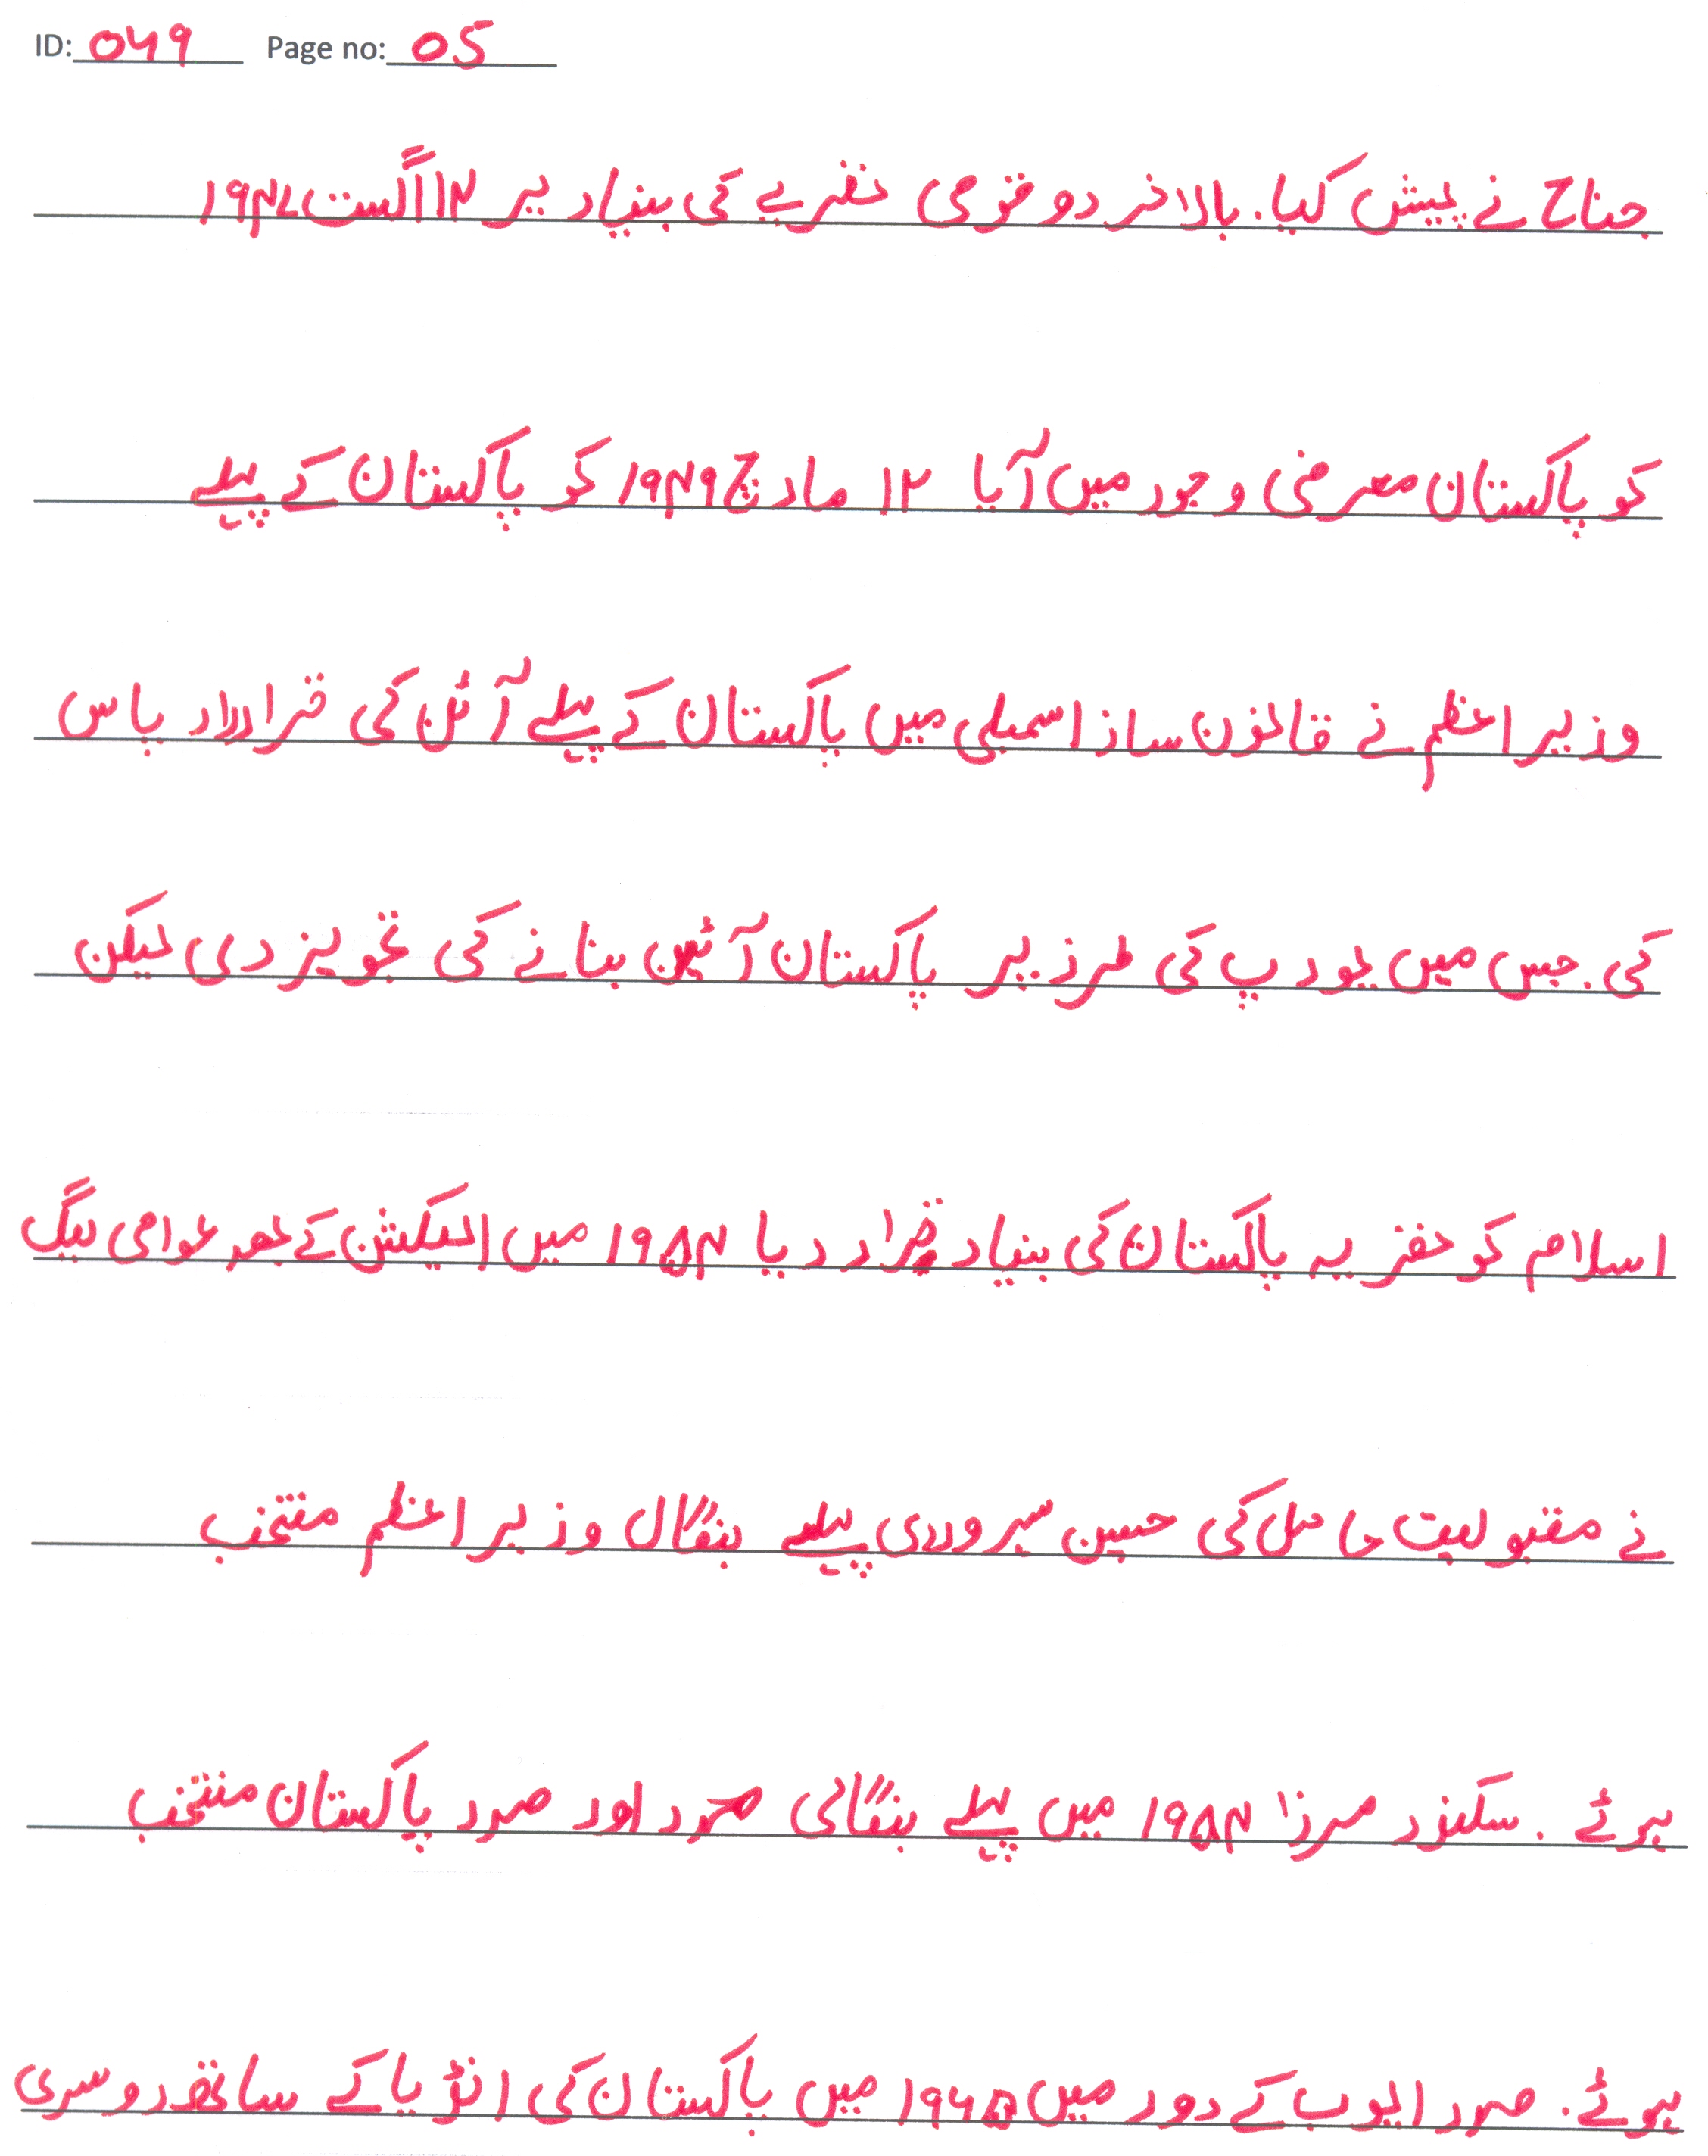 ID: 049 Page no: 05
جناح نے پیش کیا. بالاخر دو قومی نظریے کی بنیاد پر ۱۴ اگست ۱۹۴۷
کو پاکستان معرضی وجود میں آیا ۱۲ مارچ ۱۹۴۹ کو پاکستان کے پہلے
وزیر اعظم نے قانون ساز اسمبلی میں پاکستان کے پہلے آئن کی قرارداد پاس
کی. جس میں یورپ کی طرز پر پاکستان آئین بنانے کی تجویز دی لیکن
اسلام کو نظریہ پاکستان کی بنیاد قرار دیا ۱۹۵۴ میں الیکشن کے بعد عوامی لیگ
نے مقبولیت حاصل کی حسین سہروردی پہلے بنگال وزیر اعظم منتخب
ہوئے. سکندر مرزا ۱۹۵۴ میں پہلے بنگالی صدر اور صدر پاکستان منتخب
ہوئے. صدر ایوب کے دور میں ۱۹۶۵ میں پاکستان کی انڈیا کے ساتھ دوسری